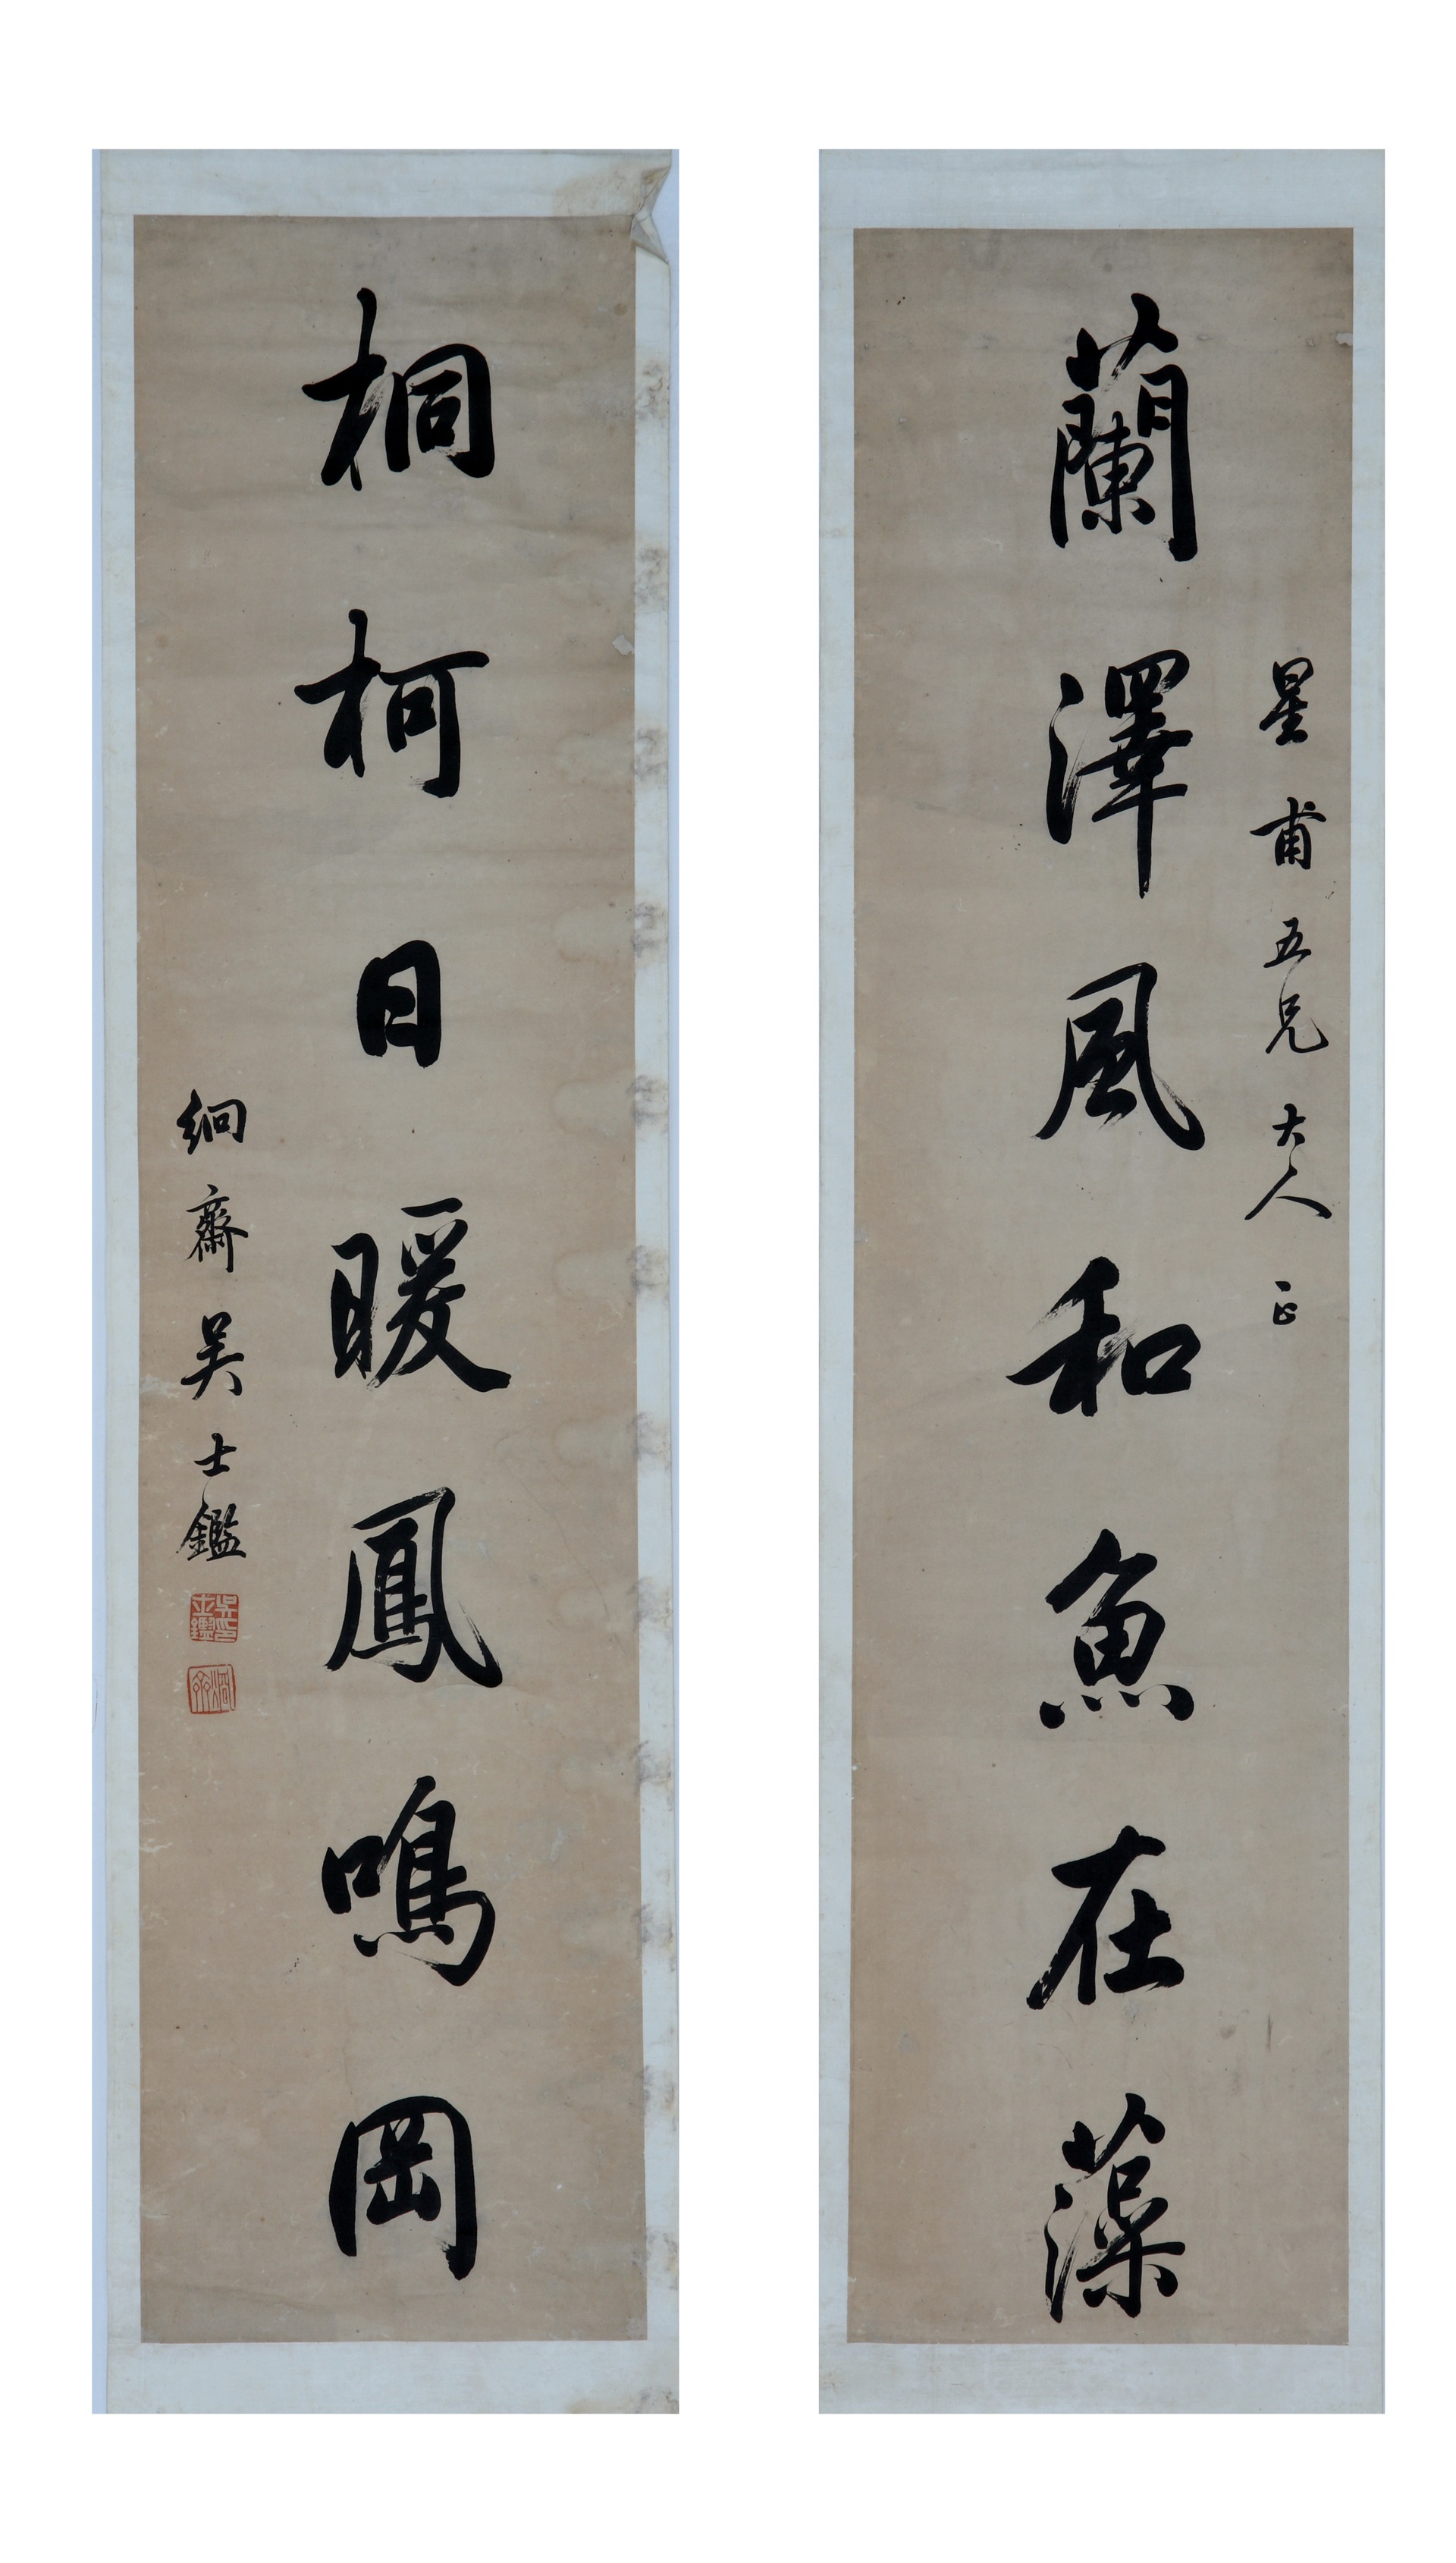 星甫五兄大人正
蘭澤風和魚在藻
桐柯日暖鳳鳴岡
絅齋吴士鑑
吳士鑑印
絅齋